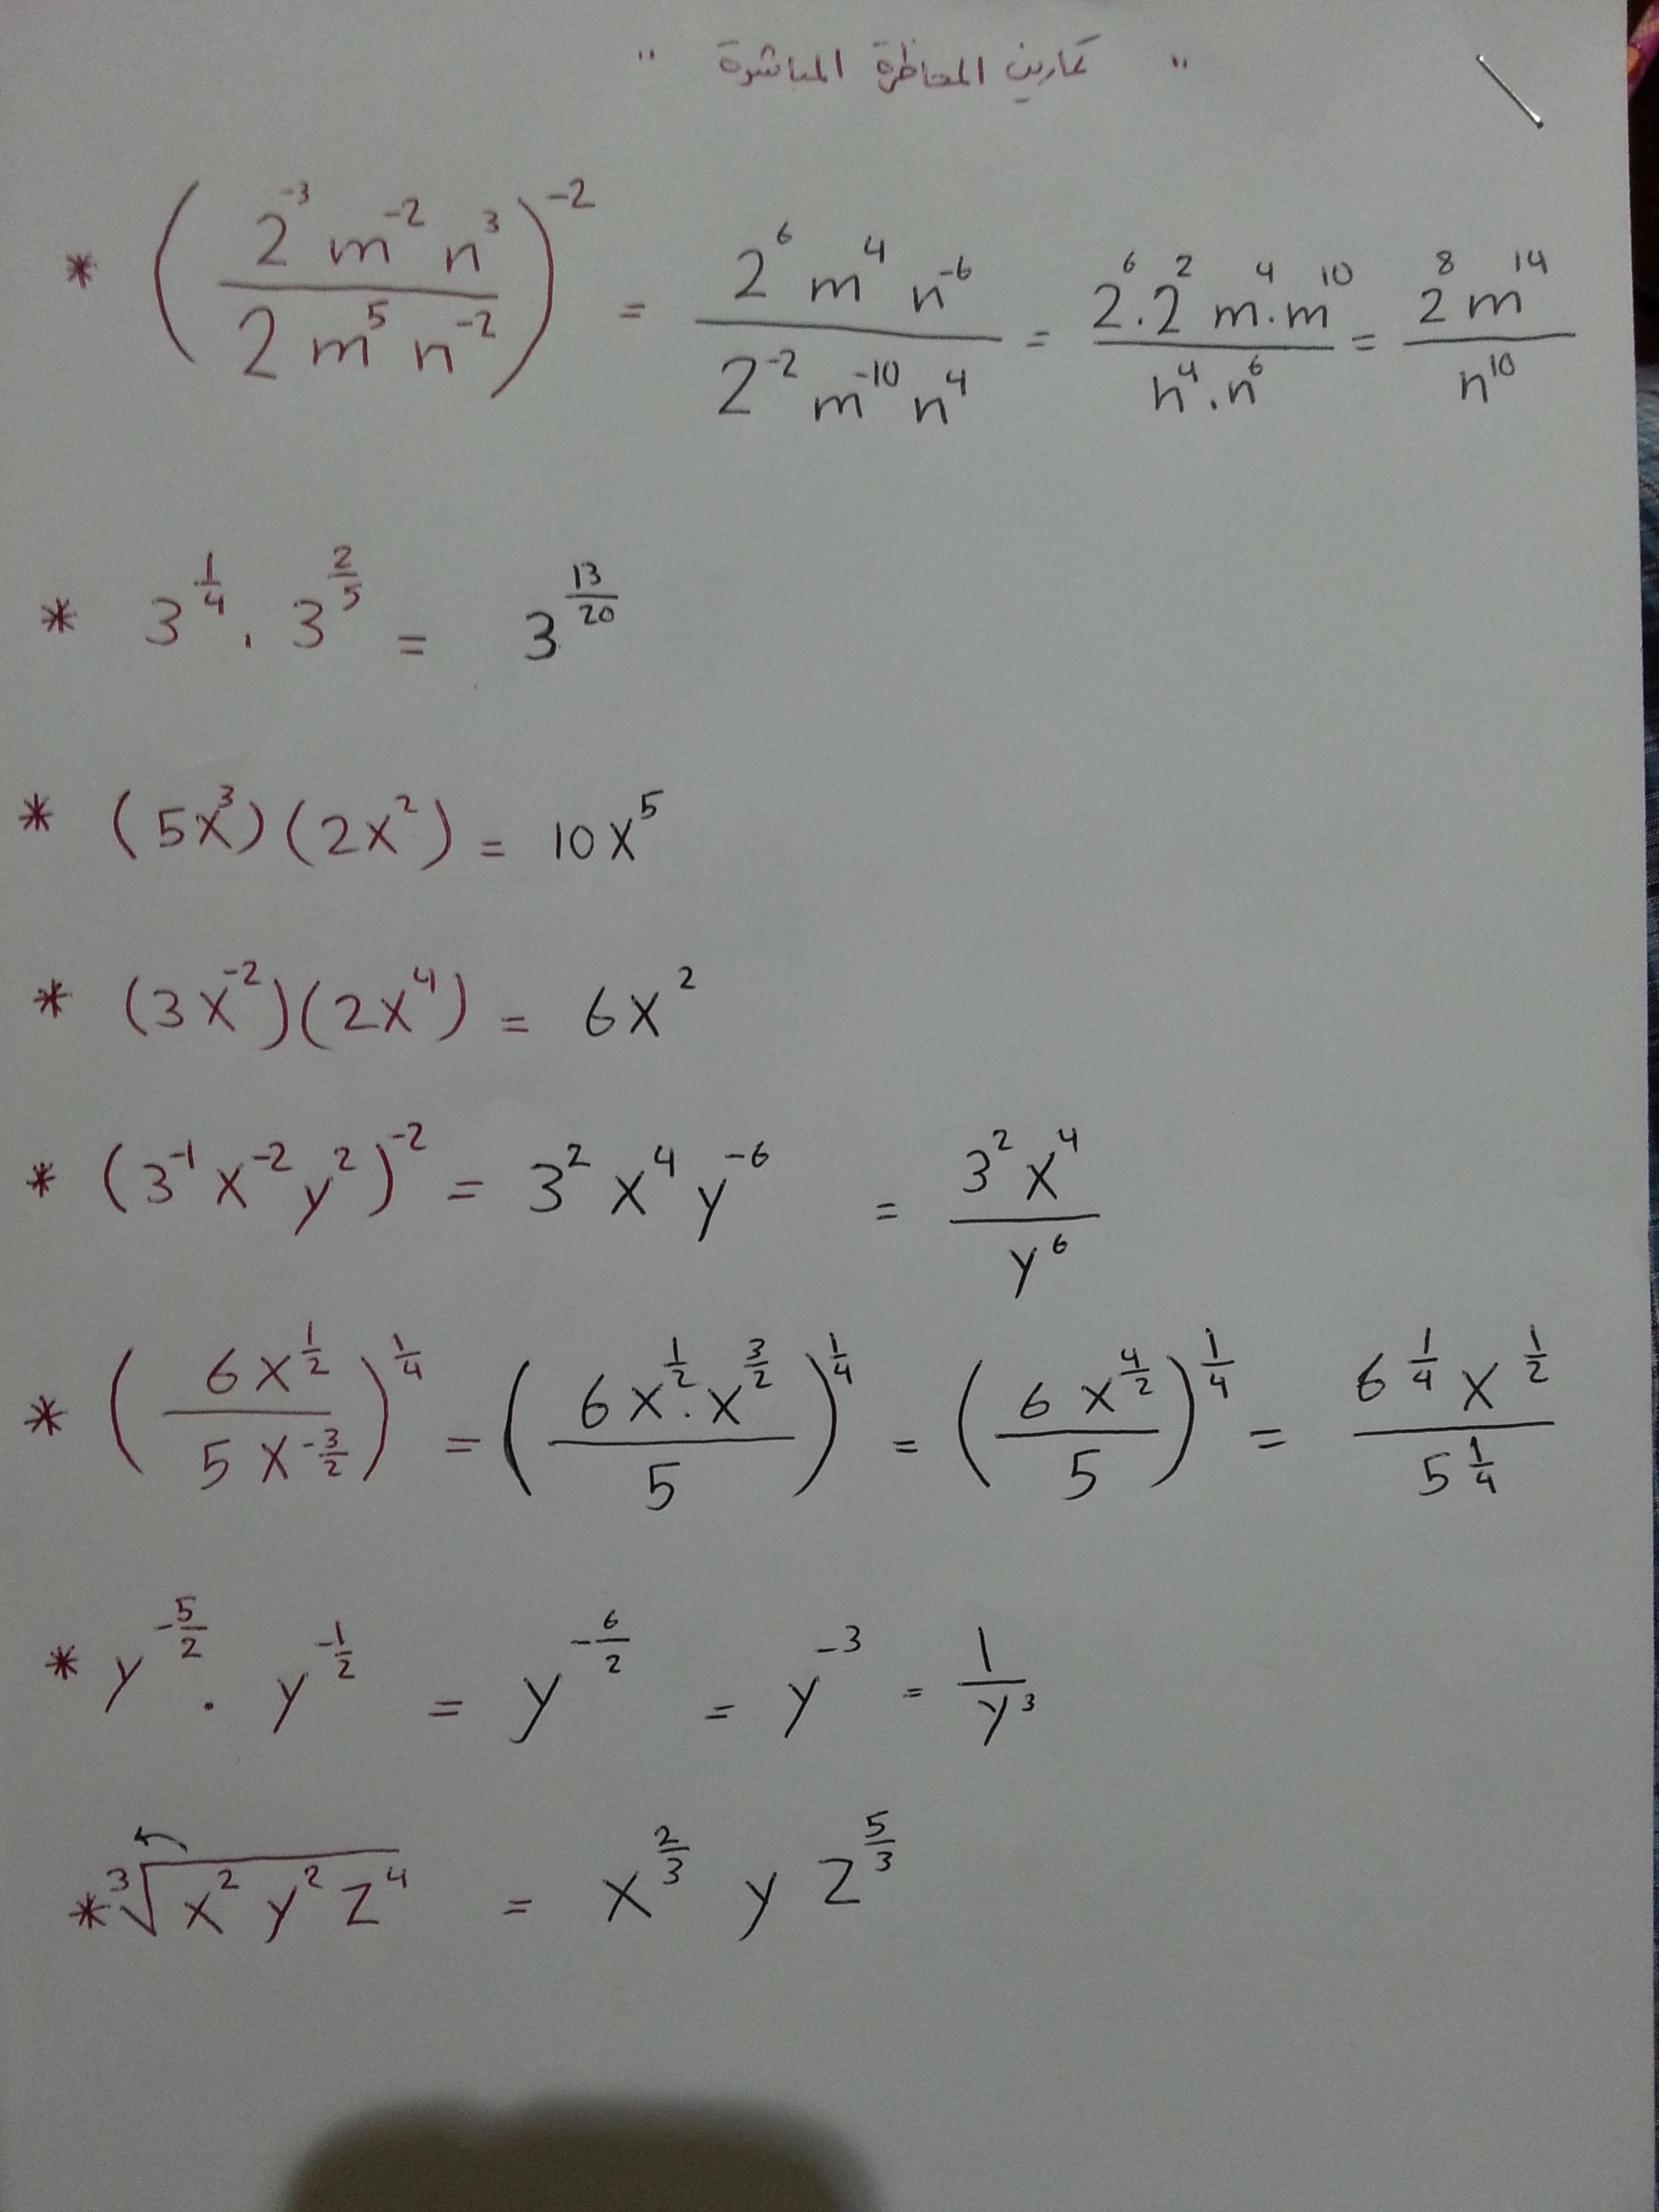 " تمارين المحاظرة المباشرة "
* (2^-3 m^-2 n^3 / 2 m^5 n^-2)^-2 = 2^6 m^4 n^-6 / 2^-2 m^-10 n^4 = 2^6 . 2^2 m^4 . m^10 / n^4 . n^6 = 2^8 m^14 / n^10
* 3^(1/4) . 3^(2/5) = 3^(13/20)
* (5x^3)(2x^2) = 10x^5
* (3x^-2)(2x^4) = 6x^2
* (3^-1 x^-2 y^2)^-2 = 3^2 x^4 y^-6 = 3^2 x^4 / y^6
* (6x^(1/2) / 5x^(-3/2))^(1/4) = (6x^(1/2) . x^(3/2) / 5)^(1/4) = (6x^(4/2) / 5)^(1/4) = 6^(1/4) x^(1/2) / 5^(1/4)
* y^(-5/2) . y^(-1/2) = y^(-6/2) = y^-3 = 1 / y^3
* ∛(x^2 y^2 z^4) = x^(2/3) y z^(5/3)